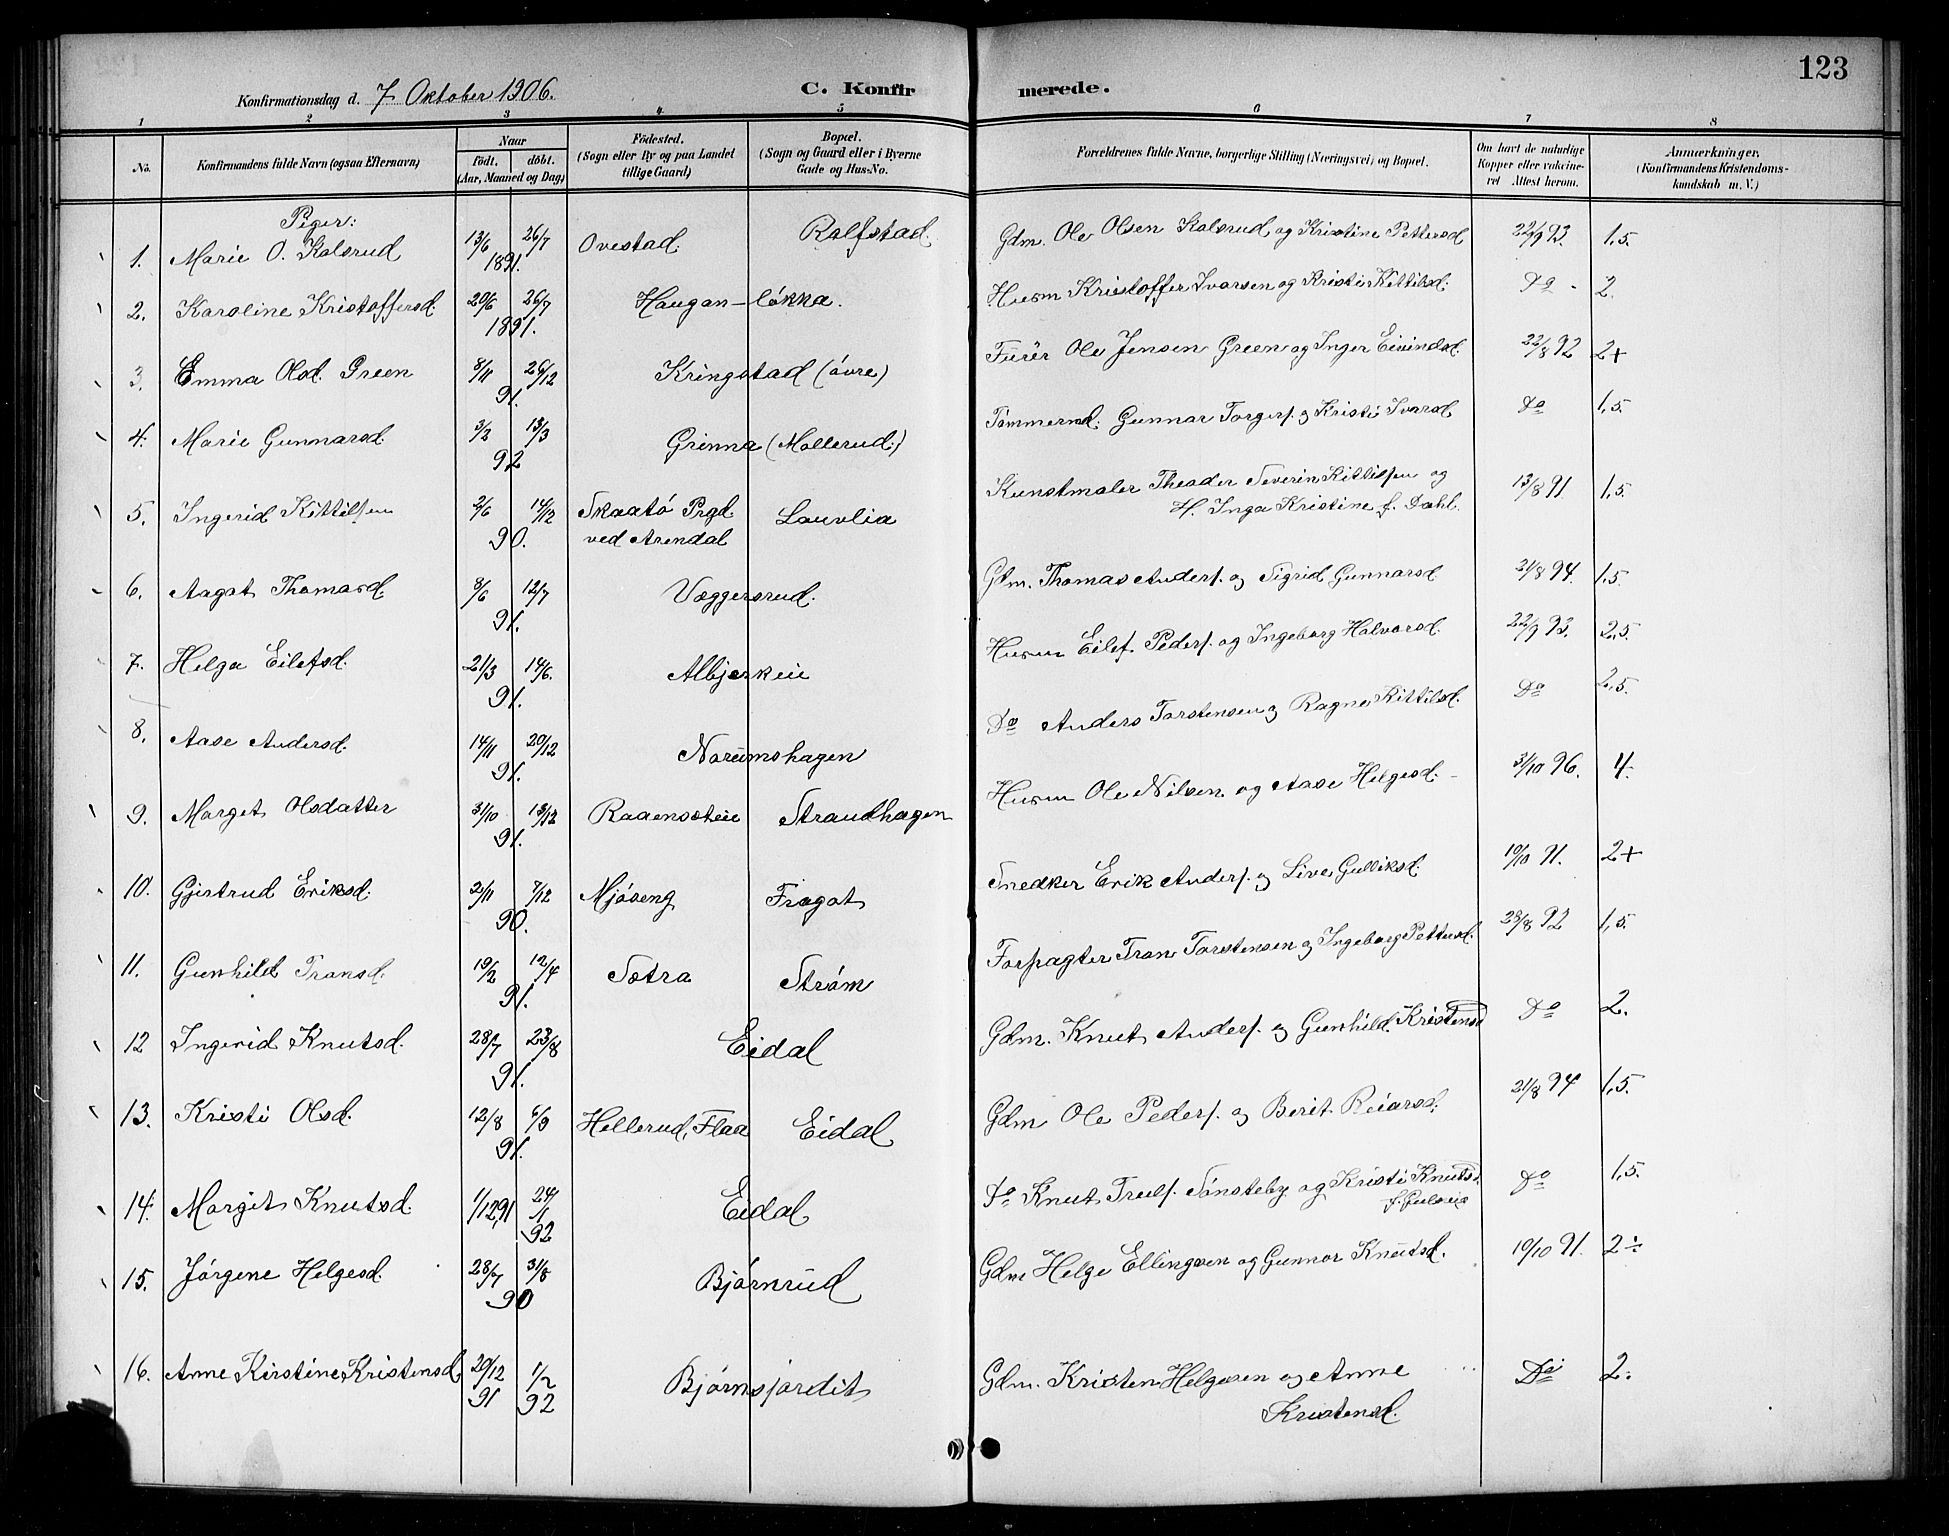 123
Konfirmationsdag d. 7 Oktober 1906. C. Konfirmerede.
1 2 3 4 5 6 7 8
No. Konfirmandens fulde Navn (ogsaa Efternavn) Naar født, døbt. (Aar, Maaned og Dag) Fødested. (Sogn eller By og paa Landet tillige Gaard) Bopæl. (Sogn og Gaard eller i Byerne Gade og Hus-No. Forældrenes fulde Navne, borgerlige Stilling (Næringsvei) og Bopæl. Om havt de naturlige Kopper eller vakcineret Attest herom. Anmærkninger, (Konfirmandens Kristendomskundskab m. V.)
Piger:
1. Marie O. Kolsrud 13/6 26/7 1891. Ovestad Rolfstad Gdm. Ole Olsen Kolsrud og Kristine Pettersd 22/9 93. 1,5.
2. Karoline Kristoffersd. 20/6 26/7 1891. Haugan-løkka. Husm Kristoffer Ivarsen og Kristi Kittilsd. Do - 2.
3. Emma Olsd. Green 8/11 26/12 91. Kringstad (øvre) Furér Ole Jensen Green og Inger Eivindsd. 22/8 92 2+
4. Marie Gunnarsd. 3/2 13/3 92 Grinna (Mollerud) Tømmermd. Gunnar Torgers. og Kristi Ivarsd Do 1,5.
5. Ingerid Kittilsen 2/6 14/12 90. Skaatø Prgd. ved Arendal Lauvlia Kunstmaler Theador Severin Kittilsen og H. Inga Kristine f. Dahl. 13/8 91 1,5.
6. Aagot Thomasd. 8/6 12/7 91. Væggersrud. Gdm. Thomas Anders. og Sigrid Gunnarsd 21/8 94. 1,5.
7. Helga Eilefsd. 21/3 14/6. 91. Albjerkeie Husm Eilef Peders. og Ingeborg Halvorsd. 22/9 93. 2,5.
8. Aase Andersd. 14/11 20/12 91. Norumshagen Do Anders Torstensen og Ragne Kittilsd. Do 2,5.
9. Marget Olsdatter 31/10 13/12 91. Raaenseteie Strandhagen Husm Ole Nilsen og Aase Helgesd. 31/10 96. 4.
10. Gjertrud Eriksd. 2/11 7/12 90. Mjøseng Fragot Snedker Erik Anders. og Live Gulliksd. 19/10 91. 2+
11. Gunhild Transd. 19/2 12/4 91. Sætra Strøm Forpagter Tran Torstensen og Ingeborg Pettersd. 23/8 92 1,5.
12 Ingerid Knutsd. 28/7 23/8 91. Eidal Gdm. Knut Anders. og Gunhild Kristensd Do 2.
13. Kristi Olsd. 12/8 6/9 91. Hellerud, Flaa Eidal Gdm Ole Peders. og Berit Reiarsd. 21/8 94 1,5.
14. Margit Knutsd. 1/12 91 24/1 92 Eidal Do Knut Truls. Sønsteby og Kristi Knutsd. f. Gulsvig Do 1,5.
15. Jørgene Helgesd. 28/7 31/8 90 Bjørnrud Gdm Helge Ellingsen og Gunnor Knutsd. 19/10 91. 2÷
16. Anne Kirstine Kristensd. 20/12 91 1/2 92 Bjørnsjordit Gdm. Kristen Helgesen og Anne Kristensd. Do 2.